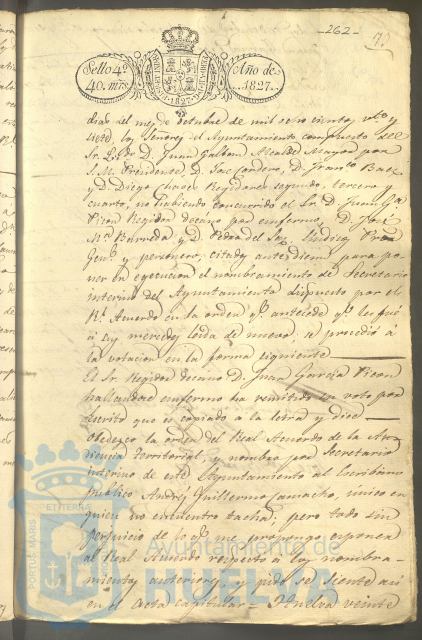 -262-
Sello 4º
40. mrs.
Año de
1827.
1827
dias del mes de octubre de mil ocho cientos veinte y
siete los Señores del Ayuntamiento compuesto del
Sr. Ldo D. Juan Galban Alcalde Mayor por
S. M. Presidente D. Jose Cordero, D. Franco Baez
y D. Diego Regidores segundo, tercero y
cuarto, no habiendo concurrido el Sr. D. Juan Ga
Picon Regidor decano por enfermo, D. Jose
Ma Barreda y D. Pedro del Sindico Pror
Genl y personero, citados antes diem para po
ner en egecucion el nombramiento de Secretario
interino del Ayuntamiento dispuesto por el
Rl Acuerdo en la orden qe antecede qe les fué
á sus mercedes leida de nuevo, se procedió á
la votacion en la forma siguiente
El Sr. Regidor decano D. Juan Garcia Picon
hallandose enfermo ha remitido su voto por
escrito que es copiado á la letra y dice
Obedezco la orden del Real Acuerdo de la Au
diencia territorial, y nombro por Secretario
interino de este Ayuntamiento al Escribano
publico Andres Guillermo Camacho, unico en
quien no encuentro tacha; pero todo sin
perjuicio de lo qe me propongo esponer
al Real Acuerdo respecto á los nombra-
mientos anteriores y pido se siente asi
en el acta capitular = Huelva veinte
PORTUS MARIS
ET TERRÆ
Ayuntamiento de
HUELVA